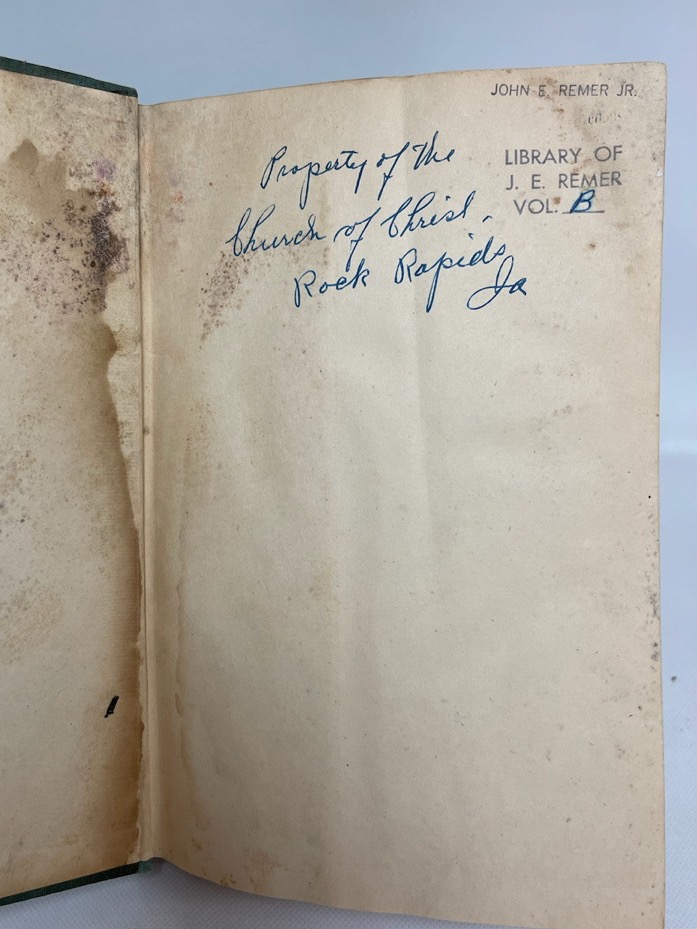 JOHN E. REMER JR.
LIBRARY OF
J. E. REMER
VOL. B
Property of the
Church of Christ.
Rock Rapids
Ia